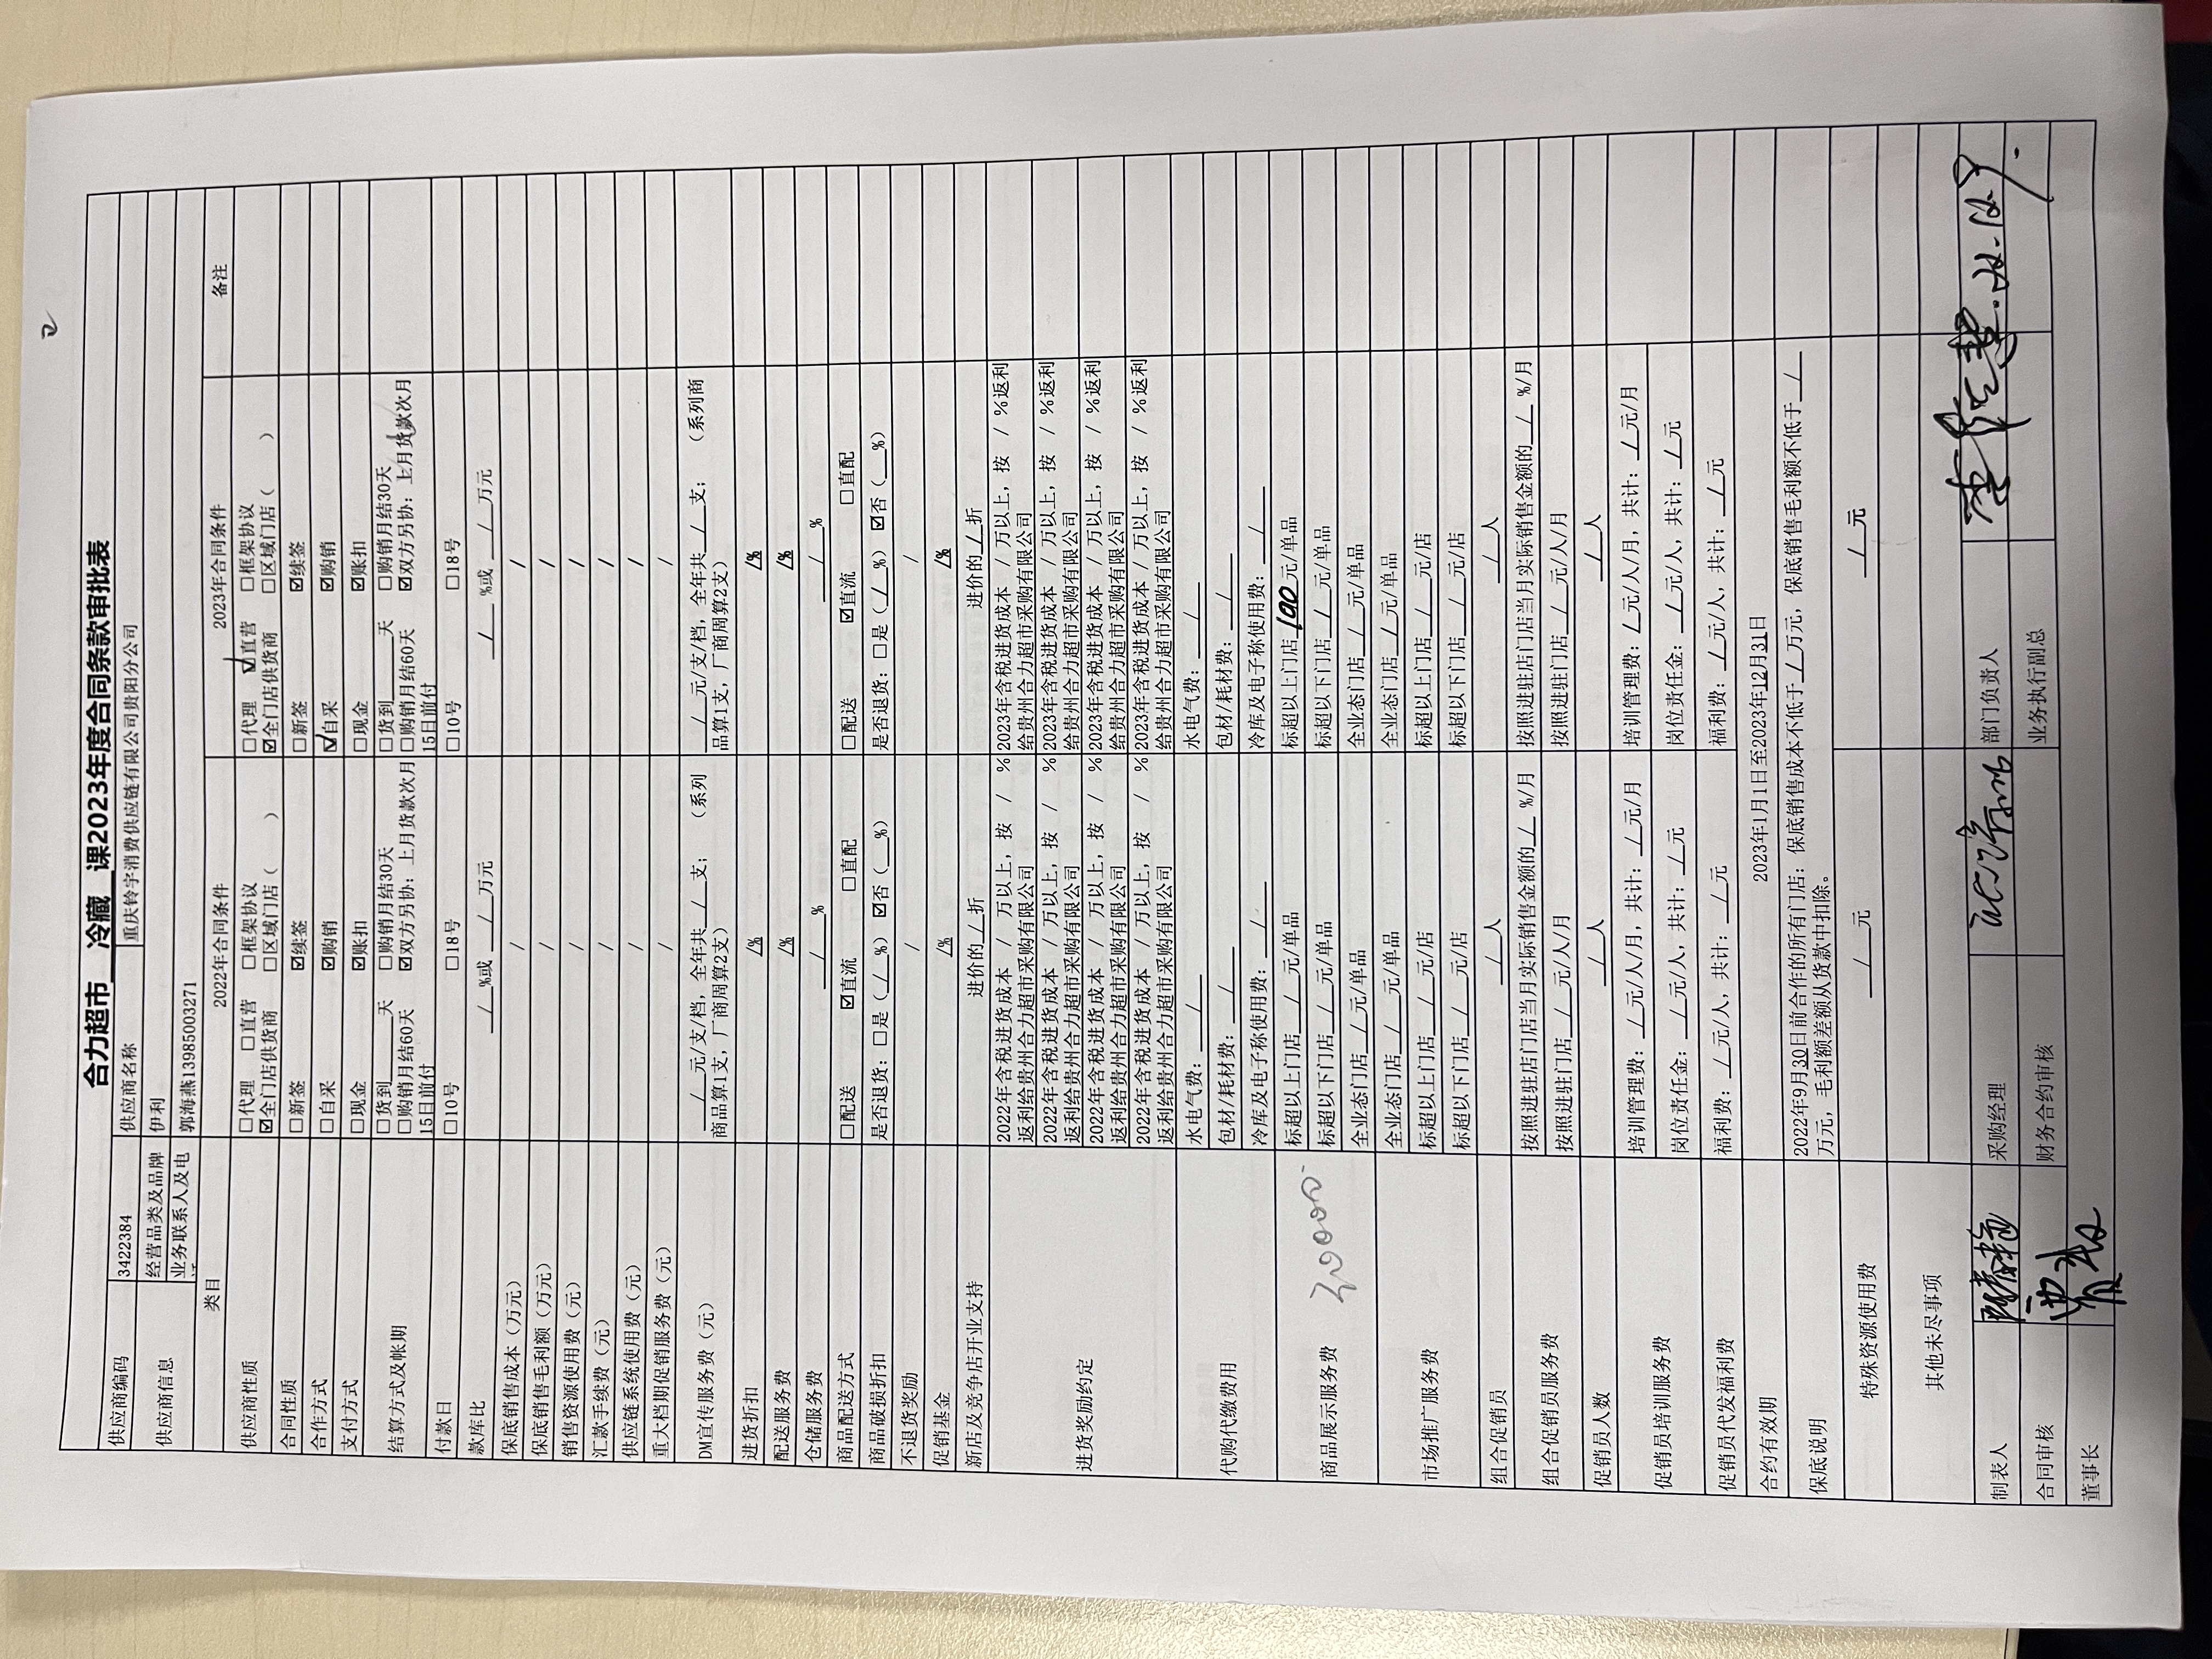 合力超市 冷藏 课2023年度合同条款审批表
供应商编码 3422384 供应商名称 重庆铃宇消费供应链有限公司贵阳分公司
供应商信息 经营品类及品牌 伊利
业务联系人及电 郭海燕13985003271
类目 2022年合同条件 2023年合同条件 备注
供应商性质 □代理 □直营 □框架协议 □代理 ☑直营 □框架协议
☑全门店供货商 □区域门店（ ） ☑全门店供货商 □区域门店（ ）
合同性质 □新签 ☑续签 □新签 ☑续签
合作方式 □自采 ☑购销 ☑自采 ☑购销
支付方式 □现金 ☑账扣 □现金 ☑账扣
结算方式及帐期 □货到___天 □购销月结30天 □货到___天 □购销月结30天
□购销月结60天 ☑双方另协：上月货款次月 □购销月结60天 ☑双方另协：上月货款次月
15日前付 15日前付
付款日 □10号 □18号 □10号 □18号
款库比 / %或 / 万元 / %或 / 万元
保底销售成本（万元） / /
保底销售毛利额（万元） / /
销售资源使用费（元） / /
汇款手续费（元） / /
供应链系统使用费（元） / /
重大档期促销服务费（元） / /
DM宣传服务费（元） / 元/支/档，全年共 / 支； （系列 / 元/支/档，全年共 / 支； （系列商
商品算1支，厂商周算2支） 品算1支，厂商周算2支）
进货折扣 /% /%
配送服务费 /% /%
仓储服务费 / % / %
商品配送方式 □配送 ☑直流 □直配 □配送 ☑直流 □直配
商品破损折扣 是否退货：□是（ / %）☑否（__%） 是否退货：□是（ / %）☑否（__%）
不退货奖励 / /
促销基金 /% /%
新店及竞争店开业支持 进价的 / 折 进价的 / 折
进货奖励约定 2022年含税进货成本 / 万以上，按 / % 2023年含税进货成本 / 万以上，按 / %返利
返利给贵州合力超市采购有限公司 给贵州合力超市采购有限公司
2022年含税进货成本 / 万以上，按 / % 2023年含税进货成本 / 万以上，按 / %返利
返利给贵州合力超市采购有限公司 给贵州合力超市采购有限公司
2022年含税进货成本 / 万以上，按 / % 2023年含税进货成本 / 万以上，按 / %返利
返利给贵州合力超市采购有限公司 给贵州合力超市采购有限公司
2022年含税进货成本 / 万以上，按 / % 2023年含税进货成本 / 万以上，按 / %返利
返利给贵州合力超市采购有限公司 给贵州合力超市采购有限公司
代购代缴费用 水电气费： / 水电气费： /
包材/耗材费： / 包材/耗材费： /
冷库及电子称使用费： / 冷库及电子称使用费： /
商品展示服务费 标超以上门店 / 元/单品 标超以上门店 100 元/单品
标超以下门店 / 元/单品 标超以下门店 / 元/单品
全业态门店 / 元/单品 全业态门店 / 元/单品
市场推广服务费 全业态门店 / 元/单品 全业态门店 / 元/单品
标超以上门店 / 元/店 标超以上门店 / 元/店
标超以下门店 / 元/店 标超以下门店 / 元/店
组合促销员 / 人 / 人
组合促销员服务费 按照进驻店门店当月实际销售金额的 / %/月 按照进驻店门店当月实际销售金额的 / %/月
按照进驻门店 / 元/人/月 按照进驻门店 / 元/人/月
促销员人数 / 人 / 人
促销员培训服务费 培训管理费： / 元/人/月，共计： / 元/月 培训管理费： / 元/人/月，共计： / 元/月
岗位责任金： / 元/人，共计： / 元 岗位责任金： / 元/人，共计： / 元
促销员代发福利费 福利费： / 元/人，共计： / 元 福利费： / 元/人，共计： / 元
合约有效期 2023年1月1日至2023年12月31日
保底说明 2022年9月30日前合作的所有门店：保底销售成本不低于 / 万元，保底销售毛利额不低于 /
万元，毛利额差额从货款中扣除。
特殊资源使用费 / 元 / 元
其他未尽事项
制表人 采购经理 部门负责人
合同审核 财务合约审核 业务执行副总
董事长